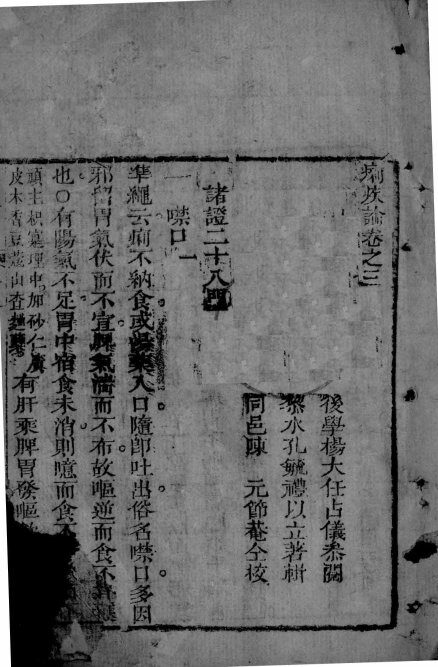 痢疾論卷之三
後學楊大任占儀叅閱
水孔毓禮以立著輯
同邑陳 元節菴仝校
諸證二十八門
一 噤口
準繩云痢不納食或湯藥入口隨即吐出俗名噤口多因
邪留胃氣伏而不宣脾氣濇而不布故嘔逆而食不
也○有陽氣不足胃中宿食未消則噫而食
頭主枳實理中加砂仁
皮木香豆蔻山查
有肝乘脾胃發嘔